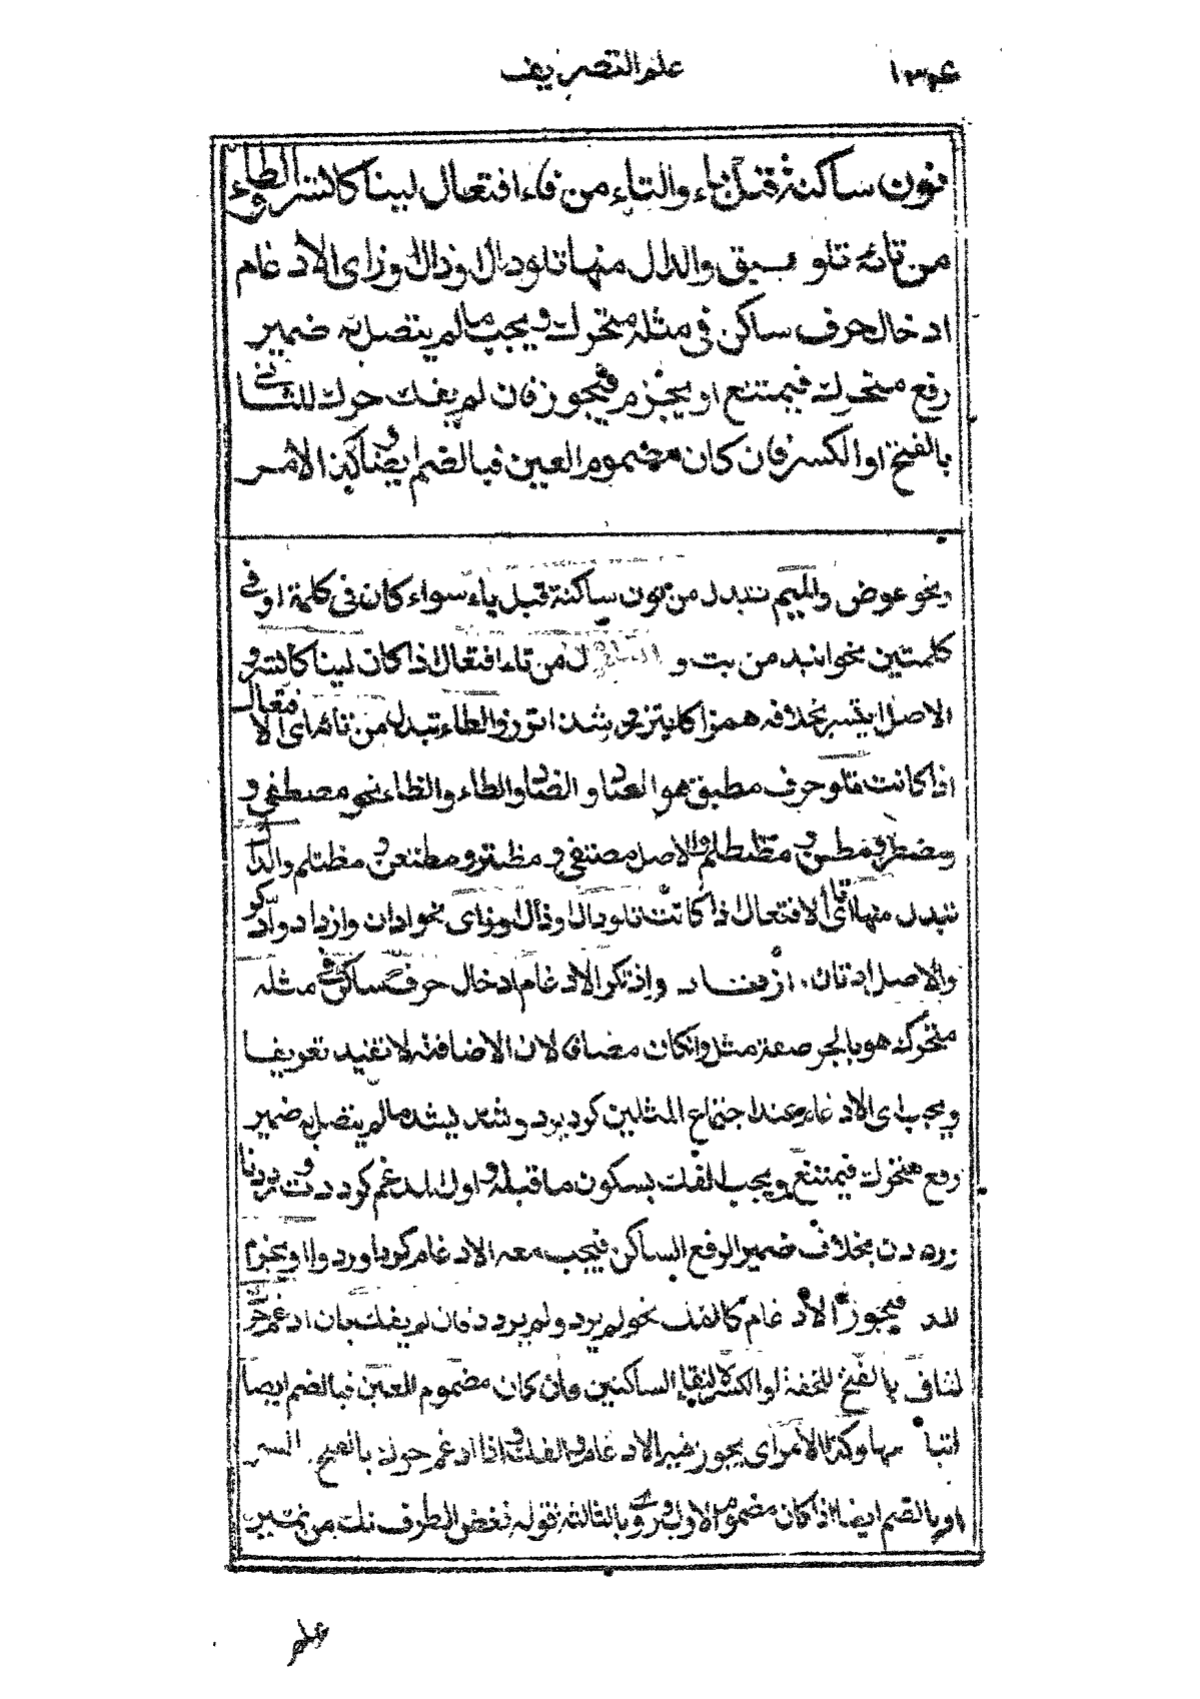 ١٣٤ علم التصريف
نون ساكنة قبل باء والتاء من فاء افتعال لينا كاتسر والطاء
من تائه تلو مطبق والدال منها تلو دال او ذال او زاى الادغام
ادخال حرف ساكن فى مثله متحرك ويجب ما لم يتصل به ضمير
رفع متحرك فيمتنع او يجزم فيجوز فان لم يفك حرك الثانى
بالفتح او الكسر فان كان مضموم العين فبالضم ايضا وكذا الامر
ونحو عوض والميم تبدل من نون ساكنة قبل باء سواء كان فى كلمة او فى
كلمتين نحو انبد من بت و من تاء افتعال اذا كان لينا كاتسر و
الاصل ايتسر بخلافه همزا كايتزر وشذ اتزر والطاء تبدل من تائه اى الافتعال
اذا كانت تلو حرف مطبق هو الصاد والضاد والطاء والظاء نحو مصطفى و
ومضطر ومطعن ومظطلم والاصل مصتفى و مضتر ومطتعن ومظتلم والدال
تبدل منها اى تاء الافتعال اذا كانت تلو دال او ذال او زاى نحو ادان وازداد وادكر
والاصل ادتان واذتكر الادغام ادخال حرف ساكن فى مثله
متحرك هو بالجر صفة مثل وانكان مضافا لان الاضافة لا تفيد تعريفا
ويجب اى الادغام عند اجتماع المثلين كرد يرد وشد يشد ما لم يتصل به ضمير
رفع متحرك فيمتنع ويجب الفك بسكون ما قبله اول المدغم كرددت و يرددنا
رددن بخلاف ضمير الرفع الساكن فيجب معه الادغام كردا وردوا او يجزم
فيجوز الادغام كالفك نحو لم يرد ولم يردد فان لم يفك بان ادغم حرك
الثانى بالفتح للخفة او الكسر لالتقاء الساكنين وان كان مضموم العين فبالضم ايضا
اتباعا وكذا الامر اى يجوز فيه الادغام والفك واذا ادغم حرك بالفتح
او بالضم ايضا اذا كان مضموم الاول وروى بالثالثة قوله فغض الطرف نك من نمير
علم